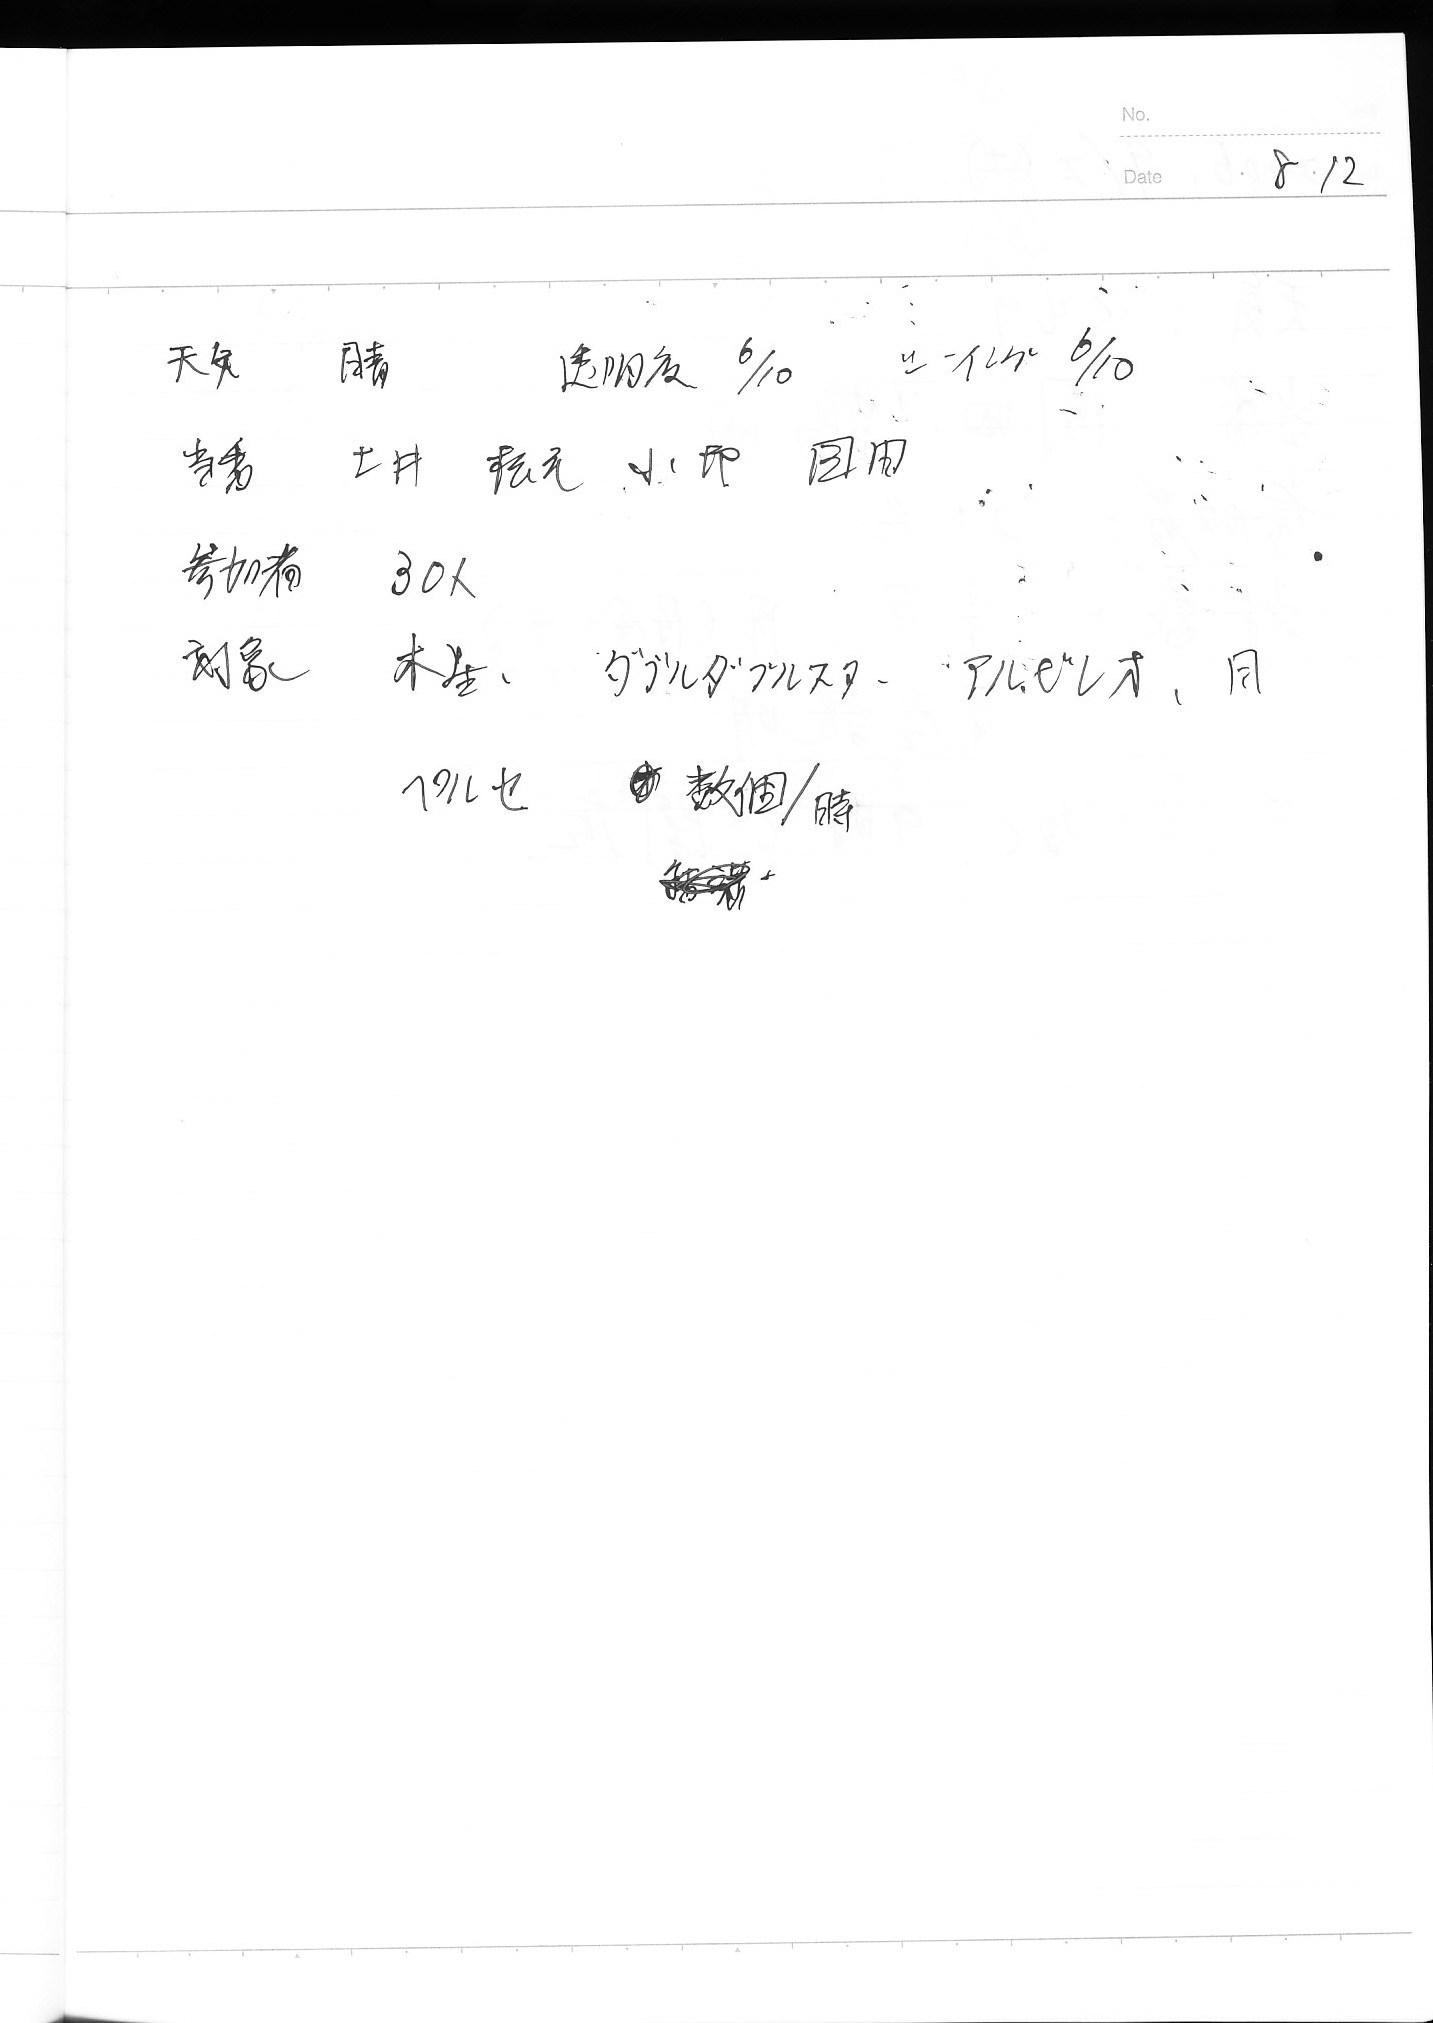 No.
Date 8・12
天気 晴 透明度 6/10 シーイング 6/10
当番 土井 松元 小印 国用
参加者 30人
対象 木星、 ダブルダブルスター アルビレオ、月
ペルセ 数個/時